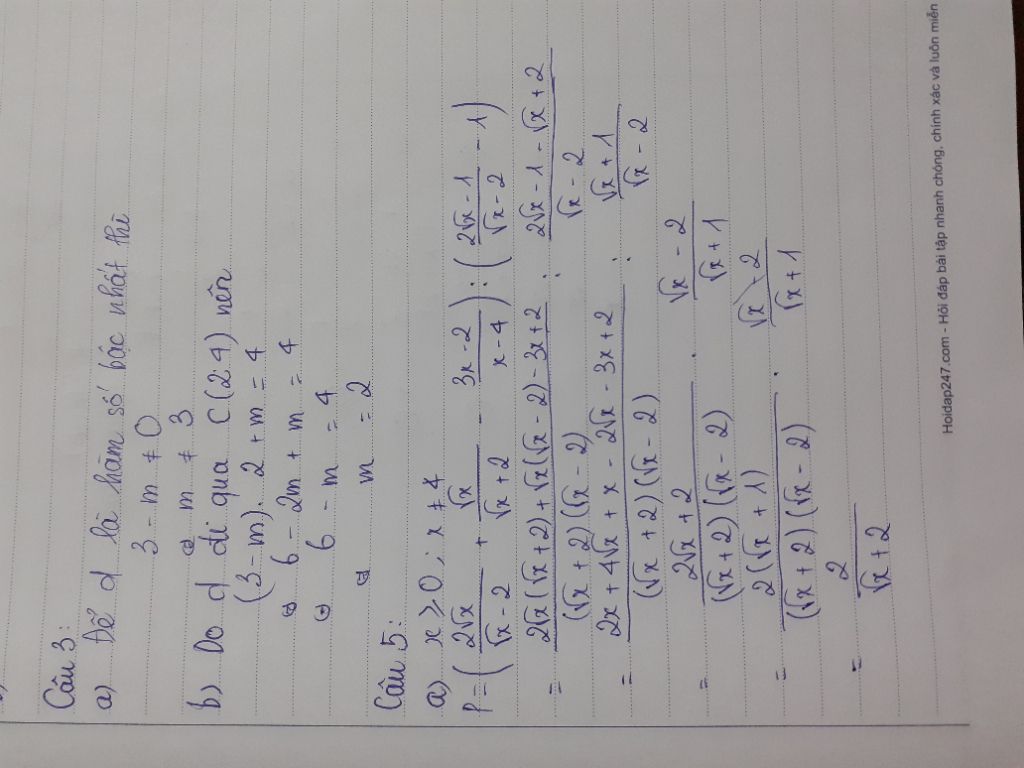 Câu 3:
a) Để d là hàm số bậc nhất thì
3 - m ≠ 0
⇔ m ≠ 3
b) Do d đi qua C(2;4) nên
(3-m). 2 + m = 4
⇔ 6 - 2m + m = 4
⇔ 6 - m = 4
⇔ m = 2
Câu 5:
a) x ≥ 0 ; x ≠ 4
P = ( 2√x / (√x - 2) + √x / (√x + 2) - (3x - 2) / (x - 4) ) : ( (2√x - 1) / (√x - 2) - 1 )
= (2√x(√x + 2) + √x(√x - 2) - 3x + 2) / ((√x + 2)(√x - 2)) : (2√x - 1 - √x + 2) / (√x - 2)
= (2x + 4√x + x - 2√x - 3x + 2) / ((√x + 2)(√x - 2)) : (√x + 1) / (√x - 2)
= (2√x + 2) / ((√x + 2)(√x - 2)) . (√x - 2) / (√x + 1)
= 2(√x + 1) / ((√x + 2)(√x - 2)) . (√x - 2) / (√x + 1)
= 2 / (√x + 2)
Hoidap247.com - Hỏi đáp bài tập nhanh chóng, chính xác và luôn miễn